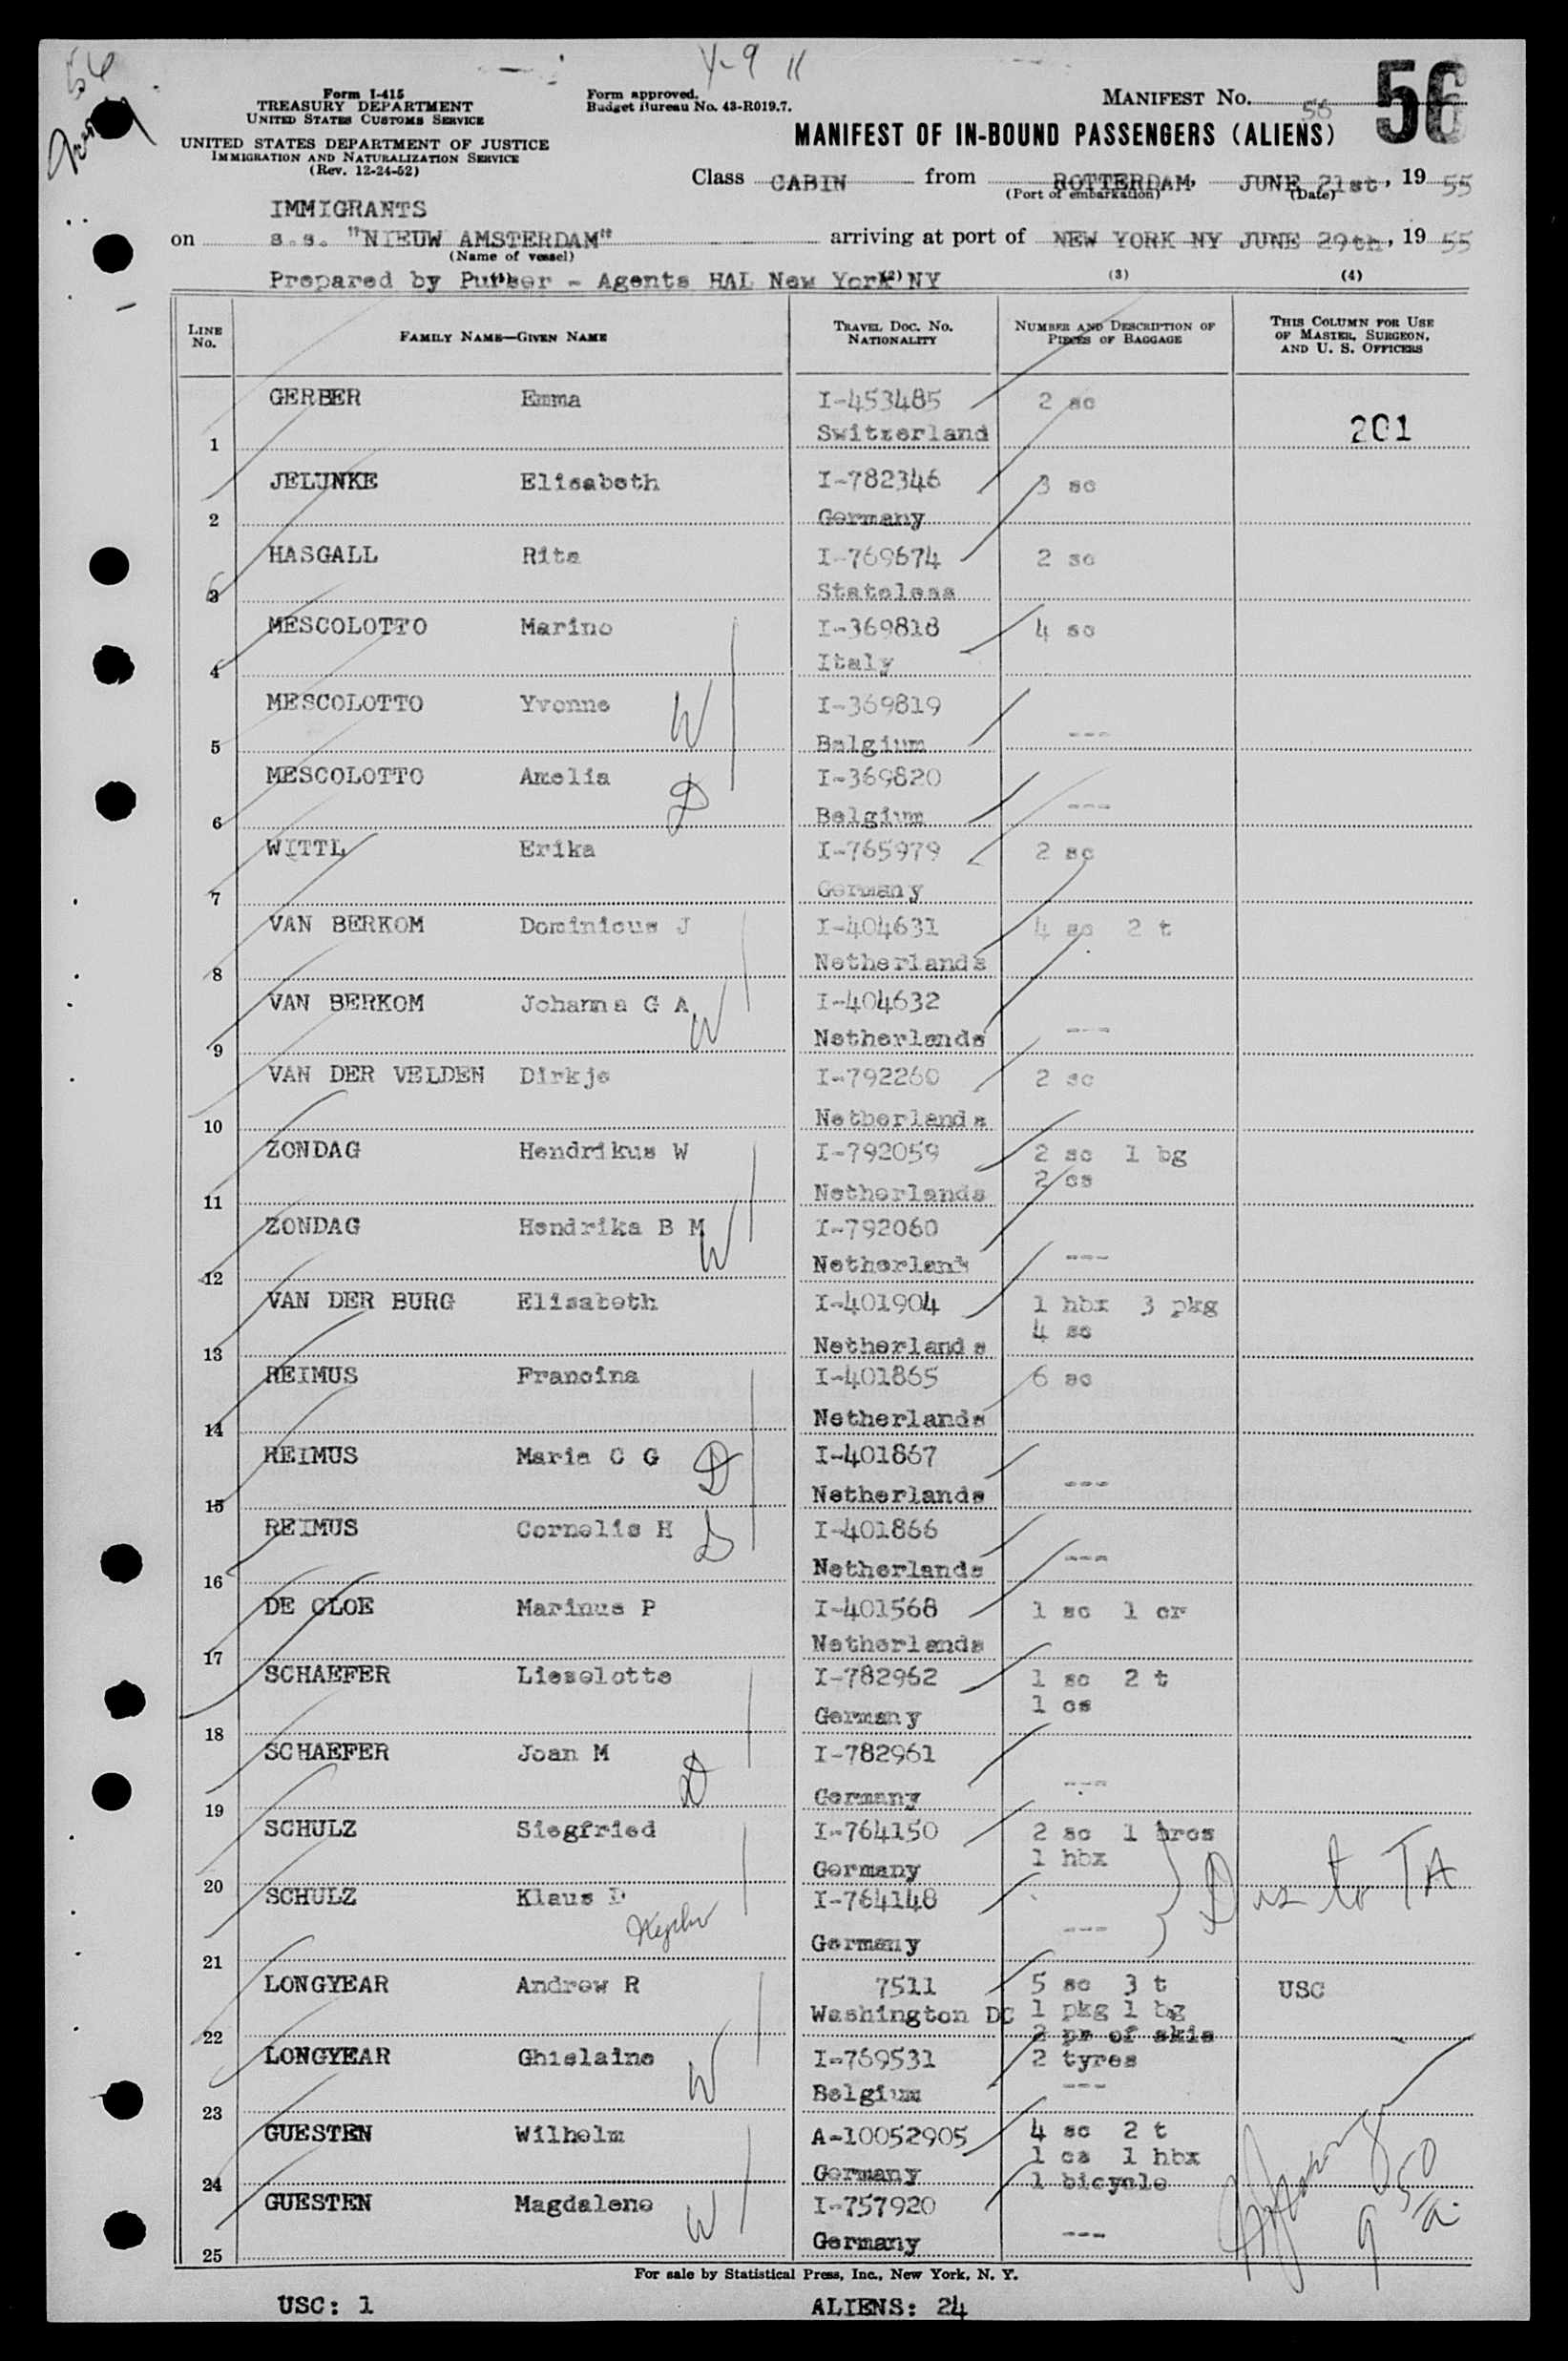 56
Y-9 11
Form I-415
TREASURY DEPARTMENT
UNITED STATES CUSTOMS SERVICE
UNITED STATES DEPARTMENT OF JUSTICE
IMMIGRATION AND NATURALIZATION SERVICE
(Rev. 12-24-52)
Form approved.
Budget Bureau No. 43-R019.7.
MANIFEST No. 56
56
MANIFEST OF IN-BOUND PASSENGERS (ALIENS)
Class CABIN from ROTTERDAM, JUNE 21st, 19 55
(Port of embarkation) (Date)
IMMIGRANTS
on s.s. "NIEUW AMSTERDAM" arriving at port of NEW YORK NY JUNE 29th, 19 55
(Name of vessel)
Prepared by Purser - Agents HAL New York NY
(1) (2) (3) (4)
LINE No. FAMILY NAME—GIVEN NAME TRAVEL DOC. No. NATIONALITY NUMBER AND DESCRIPTION OF PIECES OF BAGGAGE THIS COLUMN FOR USE OF MASTER, SURGEON, AND U. S. OFFICERS
GERBER Emma I-453485 2 sc
1 Switzerland 201
JELUNKE Elisabeth I-782346 3 sc
2 Germany
HASGALL Rita I-769674 2 sc
3 Stateless
MESCOLOTTO Marino I-369818 4 sc
4 Italy
MESCOLOTTO Yvonne W I-369819
5 Belgium ---
MESCOLOTTO Amelia D I-369820
6 Belgium ---
WITTL Erika I-765979 2 sc
7 Germany
VAN BERKOM Dominicus J I-404631 4 sc 2 t
8 Netherlands
VAN BERKOM Johanna G A W I-404632
9 Netherlands ---
VAN DER VELDEN Dirkje I-792260 2 sc
10 Netherlands
ZONDAG Hendrikus W I-792059 2 sc 1 bg
2 cs
11 Netherlands
ZONDAG Hendrika B M W I-792060
12 Netherlands ---
VAN DER BURG Elisabeth I-401904 1 hbx 3 pkg
4 sc
13 Netherlands
REIMUS Francina I-401865 6 sc
14 Netherlands
REIMUS Maria C G D I-401867
15 Netherlands ---
REIMUS Cornelis H I-401866
16 Netherlands ---
DE CLOE Marinus P I-401568 1 sc 1 cr
17 Netherlands
SCHAEFER Lieselotte I-782962 1 sc 2 t
1 cs
18 Germany
SCHAEFER Joan M D I-782961
19 Germany ---
SCHULZ Siegfried I-764150 2 sc 1 brcs
1 hbx
20 Germany
SCHULZ Klaus D I-764148 to TA
21 Germany ---
LONGYEAR Andrew R 7511 5 sc 3 t USC
Washington DC 1 pkg 1 bg
22 2 pr of skis
LONGYEAR Ghislaine W I-769531 2 tyres
23 Belgium ---
GUESTEN Wilhelm A-10052905 4 sc 2 t
1 cs 1 hbx
24 Germany 1 bicycle
GUESTEN Magdalene W I-757920
25 Germany ---
For sale by Statistical Press, Inc., New York, N. Y.
USC: 1 ALIENS: 24